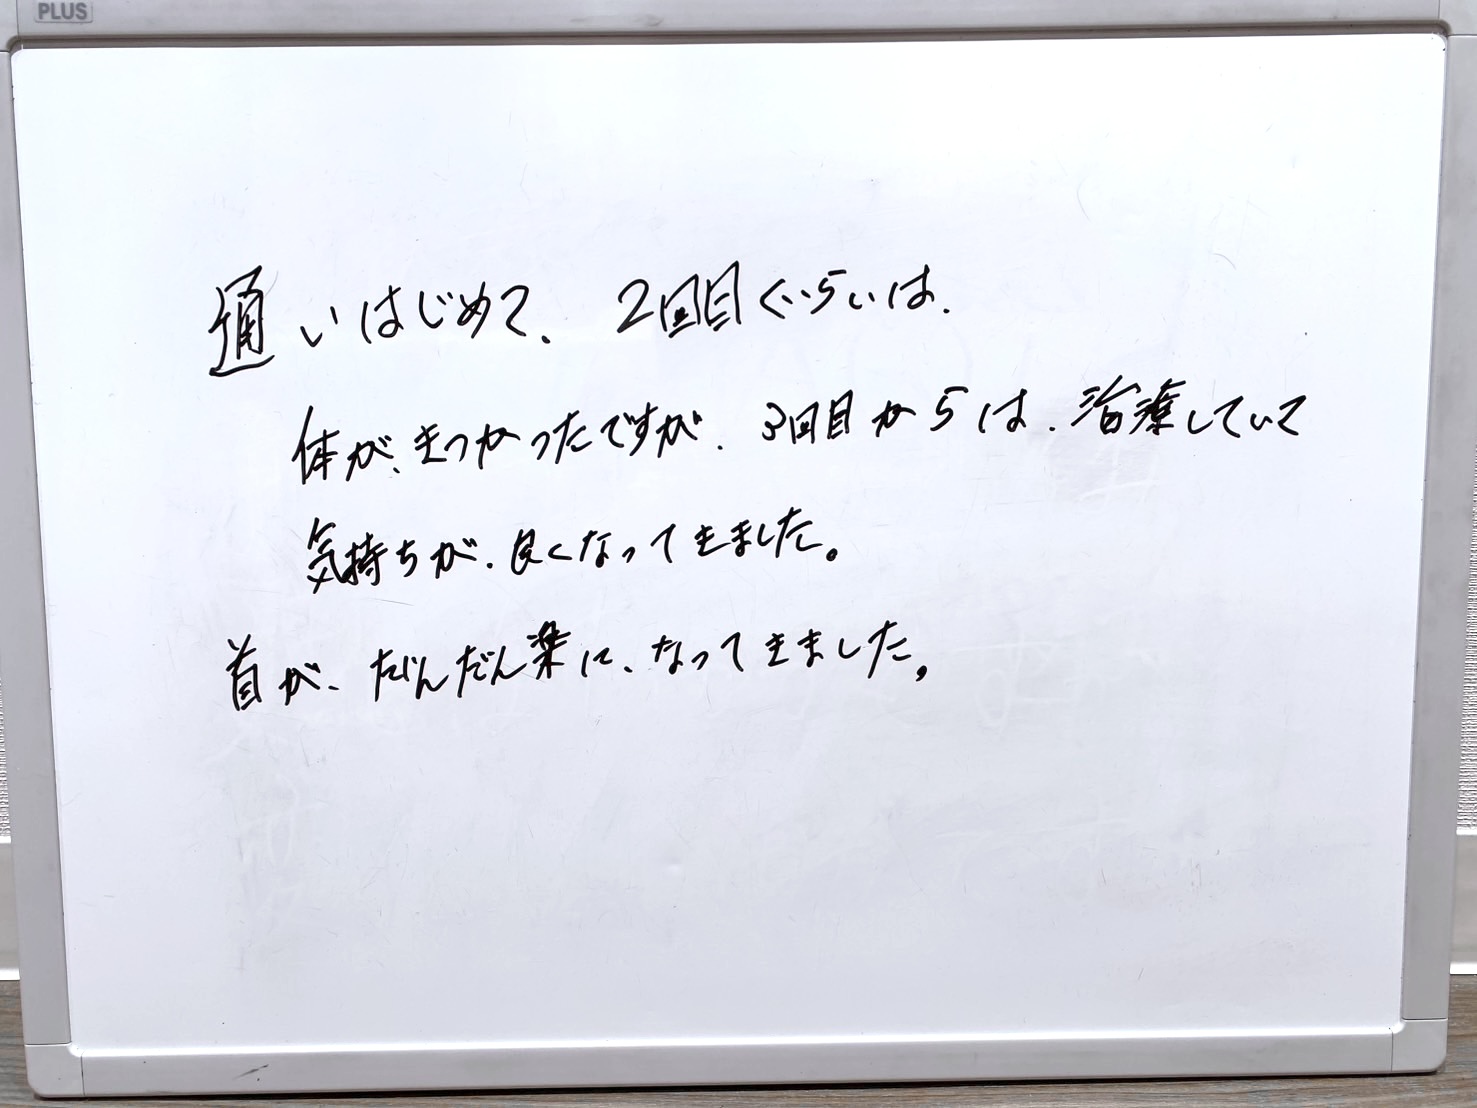 PLUS
通いはじめて、2回目ぐらいは、
体が、きつかったですが、3回目からは、治療していて
気持ちが、良くなってきました。
首が、だんだん楽に、なってきました。